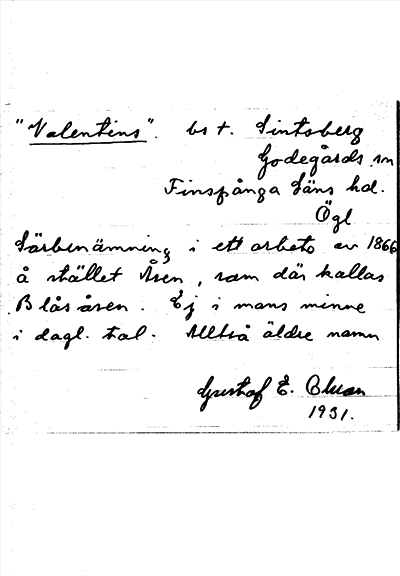 "Valentins". bs t. Sintsberg
Godegårds sn
Finspånga läns hd.
Ögl
Särbenämning i ett arbete av 1866
å stället Åsen, som där kallas
Blåsåsen. Ej i mans minne
i dagl. tal. Alltså äldre namn
Gustaf E.
1931.